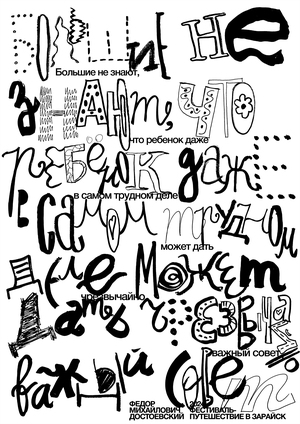 Большие не
Большие не знают,
знают, что
что ребенок даже
ребёнок даже
в самом трудном деле
в самом трудном
может дать
деле может
чрезвычайно
дать чрезвычайно
важный совет
важный совет
ФЕДОР
МИХАЙЛОВИЧ
ДОСТОЕВСКИЙ
ФЕСТИВАЛЬ-
ПУТЕШЕСТВИЕ В ЗАРАЙСК